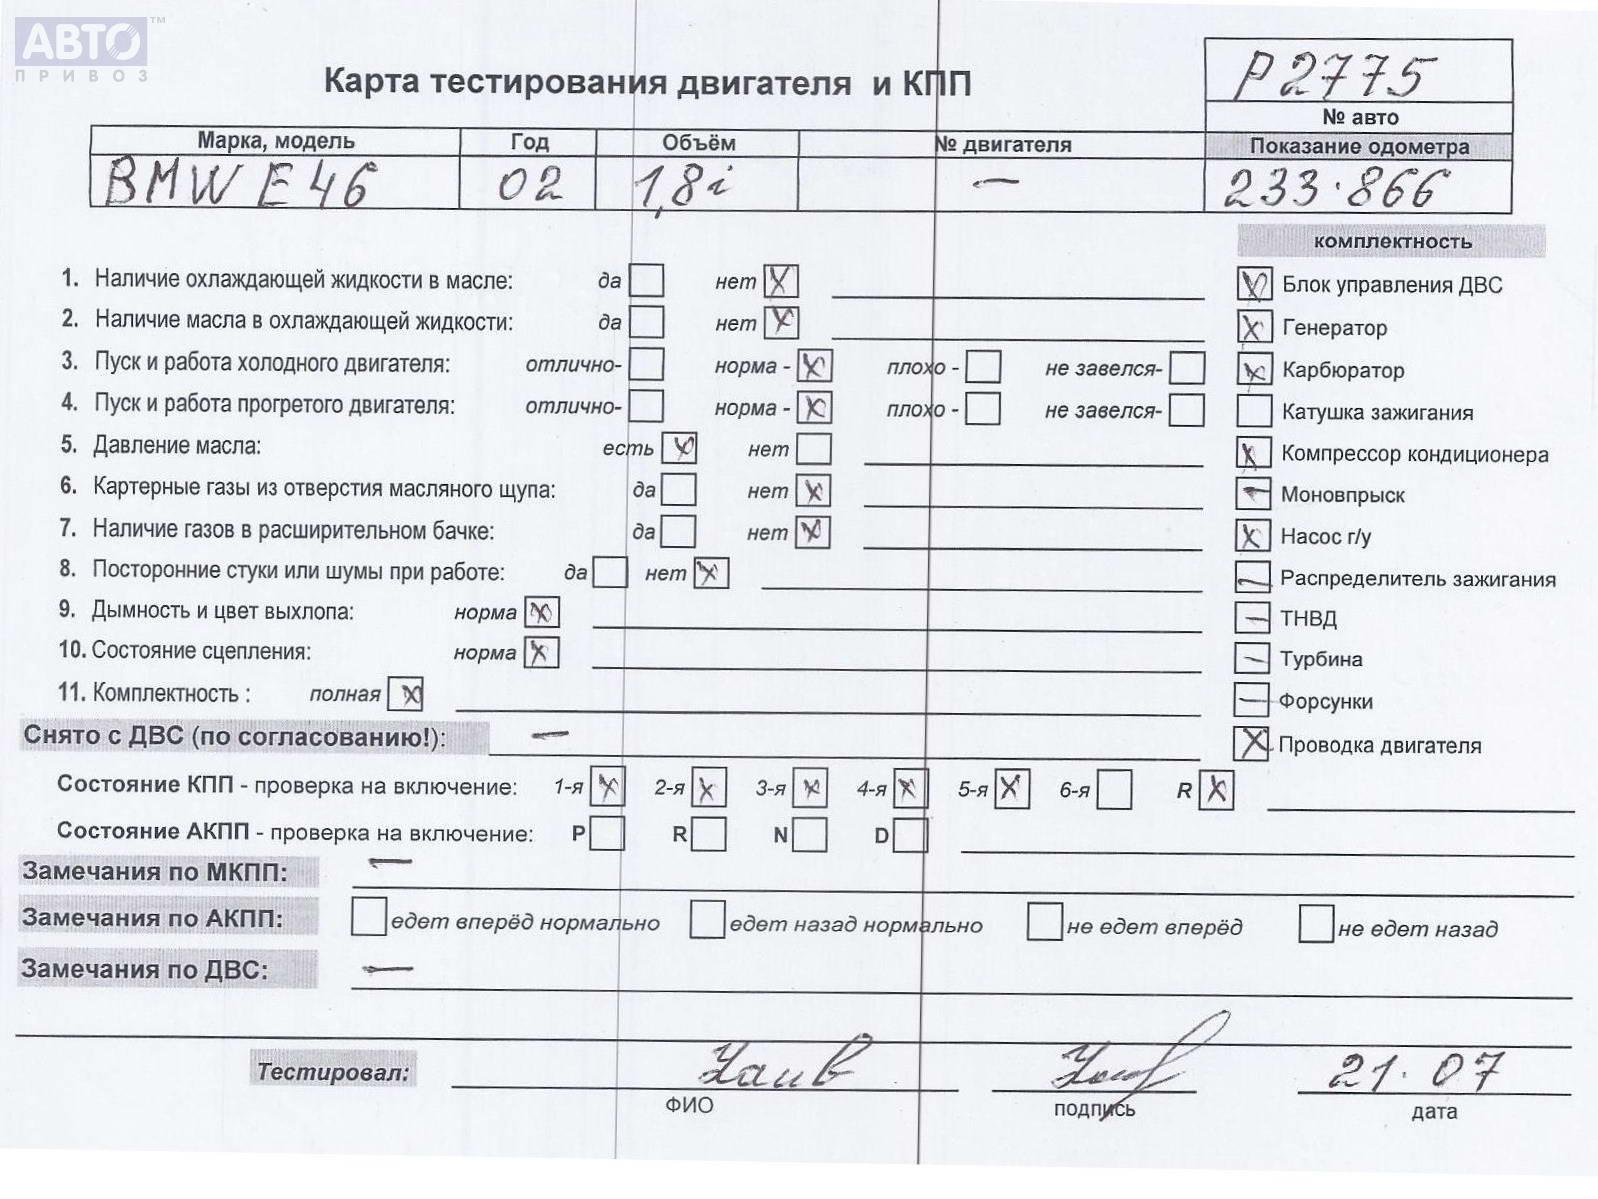 АВТО™
ПРИВОЗ
Карта тестирования двигателя и КПП
P2775
№ авто
Марка, модель Год Объём № двигателя Показание одометра
BMW E46 02 1,8i — 233.866
комплектность
1. Наличие охлаждающей жидкости в масле: да нет X
2. Наличие масла в охлаждающей жидкости: да нет X
3. Пуск и работа холодного двигателя: отлично- норма - X плохо - не завелся-
4. Пуск и работа прогретого двигателя: отлично- норма - X плохо - не завелся-
5. Давление масла: есть X нет
6. Картерные газы из отверстия масляного щупа: да нет X
7. Наличие газов в расширительном бачке: да нет X
8. Посторонние стуки или шумы при работе: да нет X
9. Дымность и цвет выхлопа: норма X
10. Состояние сцепления: норма X
11. Комплектность : полная X
X Блок управления ДВС
X Генератор
X Карбюратор
Катушка зажигания
X Компрессор кондиционера
— Моновпрыск
X Насос г/у
— Распределитель зажигания
— ТНВД
— Турбина
— Форсунки
X Проводка двигателя
Снято с ДВС (по согласованию!): —
Состояние КПП - проверка на включение: 1-я X 2-я X 3-я X 4-я X 5-я X 6-я R X
Состояние АКПП - проверка на включение: P R N D
Замечания по МКПП: —
Замечания по АКПП: едет вперёд нормально едет назад нормально не едет вперёд не едет назад
Замечания по ДВС: —
Тестировал: 21.07
ФИО подпись дата